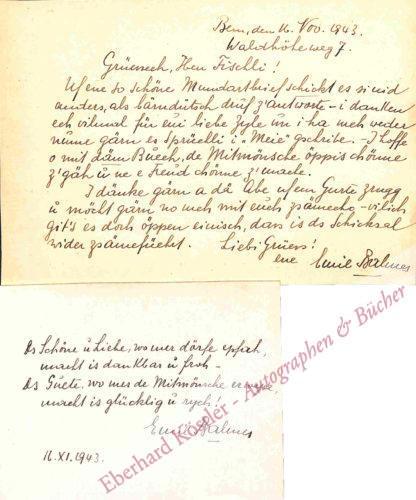 Bern, den 16. Nov. 1943.
Waldhöheweg 7.
Grüessech, Herr Fischli!
Uf ene so schöne Mundartbrief schickt es si nid
anders, als bärndütsch druf z'antworte – i danken
ech vilmal für eui liebe Zyle un i ha mech weder
numme gärn es Sprüchli i "Meie" gschribe. – I hoffe
o mit däm Buech, de Mitmönsche öppis chönne
z'gäh u ne e Freud chönne z'mache.
I dänke gärn a dä Abe uf em Gurte zrugg
u möcht gärn no meh mit euch zsämecho – vilich
git's es doch öppen einisch, dass is ds Schicksal
wider zsämefüehrt. Liebi Grüess!
eue Emil Balmer
Ds Schöne u Liebe, wo mer dörfe epfah,
macht is dankbar u froh –
Ds Guete, wo mer de Mitmönsche
macht is glücklig u rych!
Emil Balmer
16. XI. 1943.
Eberhard Köstler - Autographen & Bücher